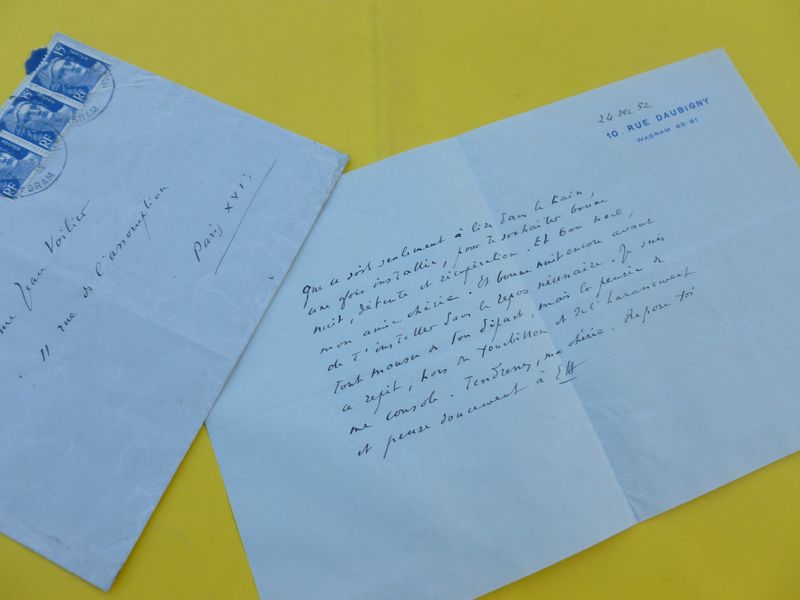 me Jean Voilier
11 rue de l'assomption
Paris XVIe
15F
POSTES
RF
15F
RF
RF
24 Dec 52
10. RUE DAUBIGNY
WAGRAM 65-81
Que ce soit seulement à lire dans le train,
une fois installée, pour te souhaiter bonne
nuit, détente et récupération. Et bon noël,
mon amie chérie. Et bonne nuit encore avant
de t'installer dans le repos nécessaire. Je suis
tout mousu de ton départ, mais la pensée de
ce répit, hors du tourbillon et de l'harassement
me console. Tendresses, ma chérie. Repose toi
et pense doucement à